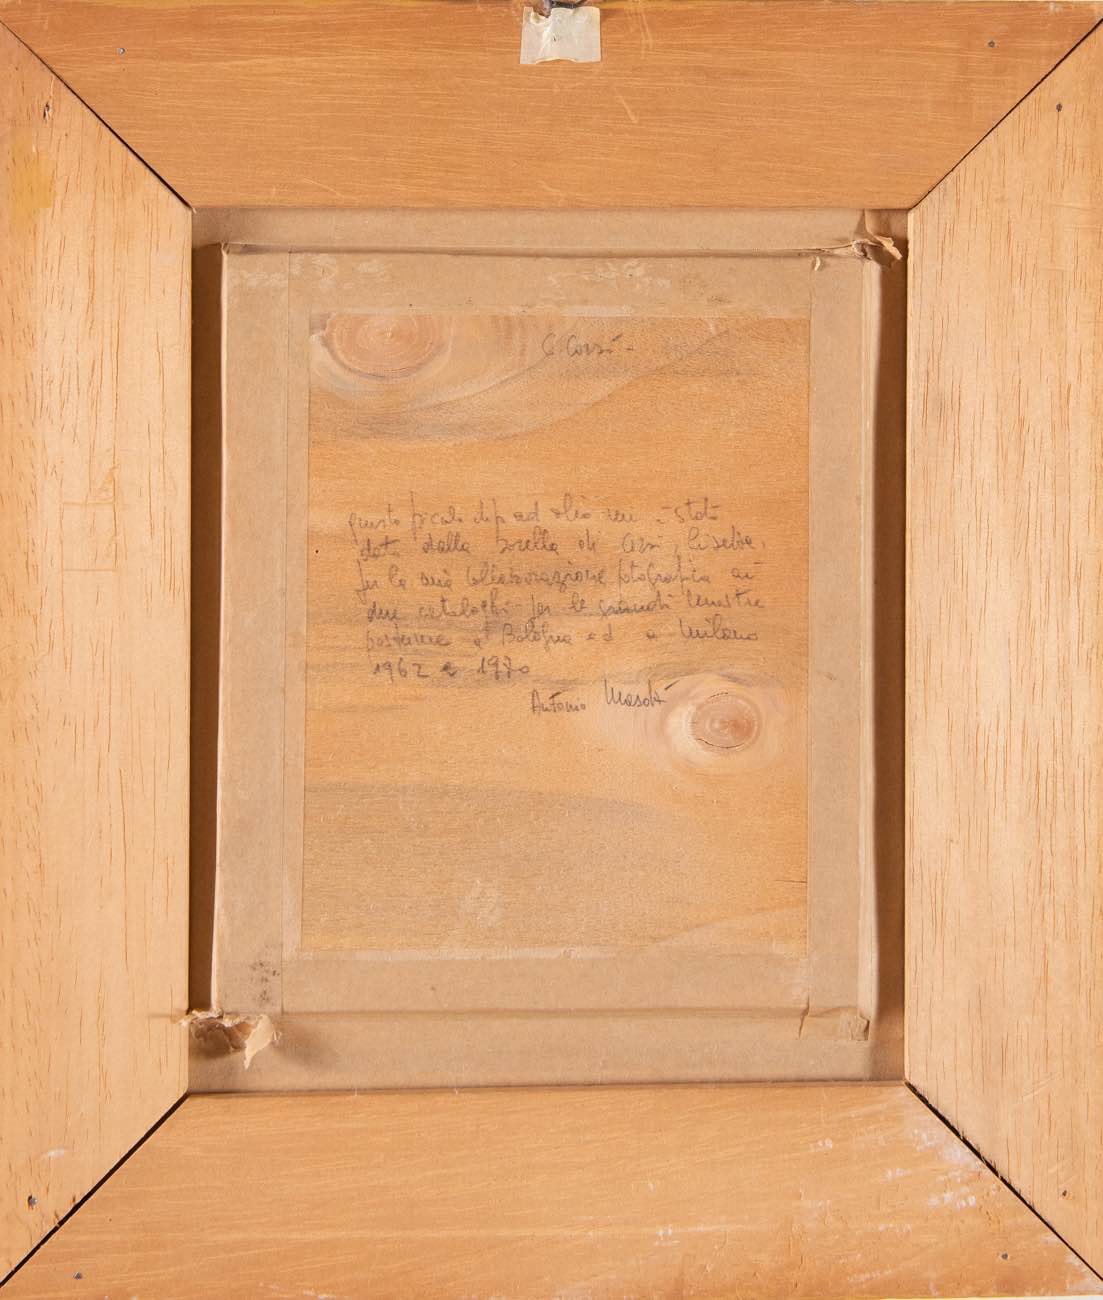 C Corsi -
questo piccolo dip ad olio mi è stato
dato dalla sorella di Corsi,
per la mia collaborazione fotografica ai
due cataloghi per le grandi mostre
postume a Bologna ed a Milano
1962 e 1970
Antonio Masotti